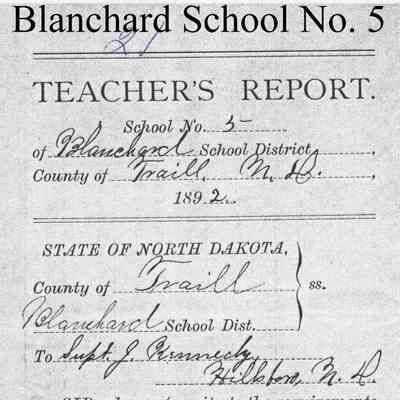 Blanchard School No. 5
21
TEACHER'S REPORT.
School No. 5
of Blanchard School District,
County of Traill, N. D.,
1892.
STATE OF NORTH DAKOTA,
County of Traill ss.
Blanchard School Dist.
To Supt. J. Kennedy,
Hillsboro, N. D.